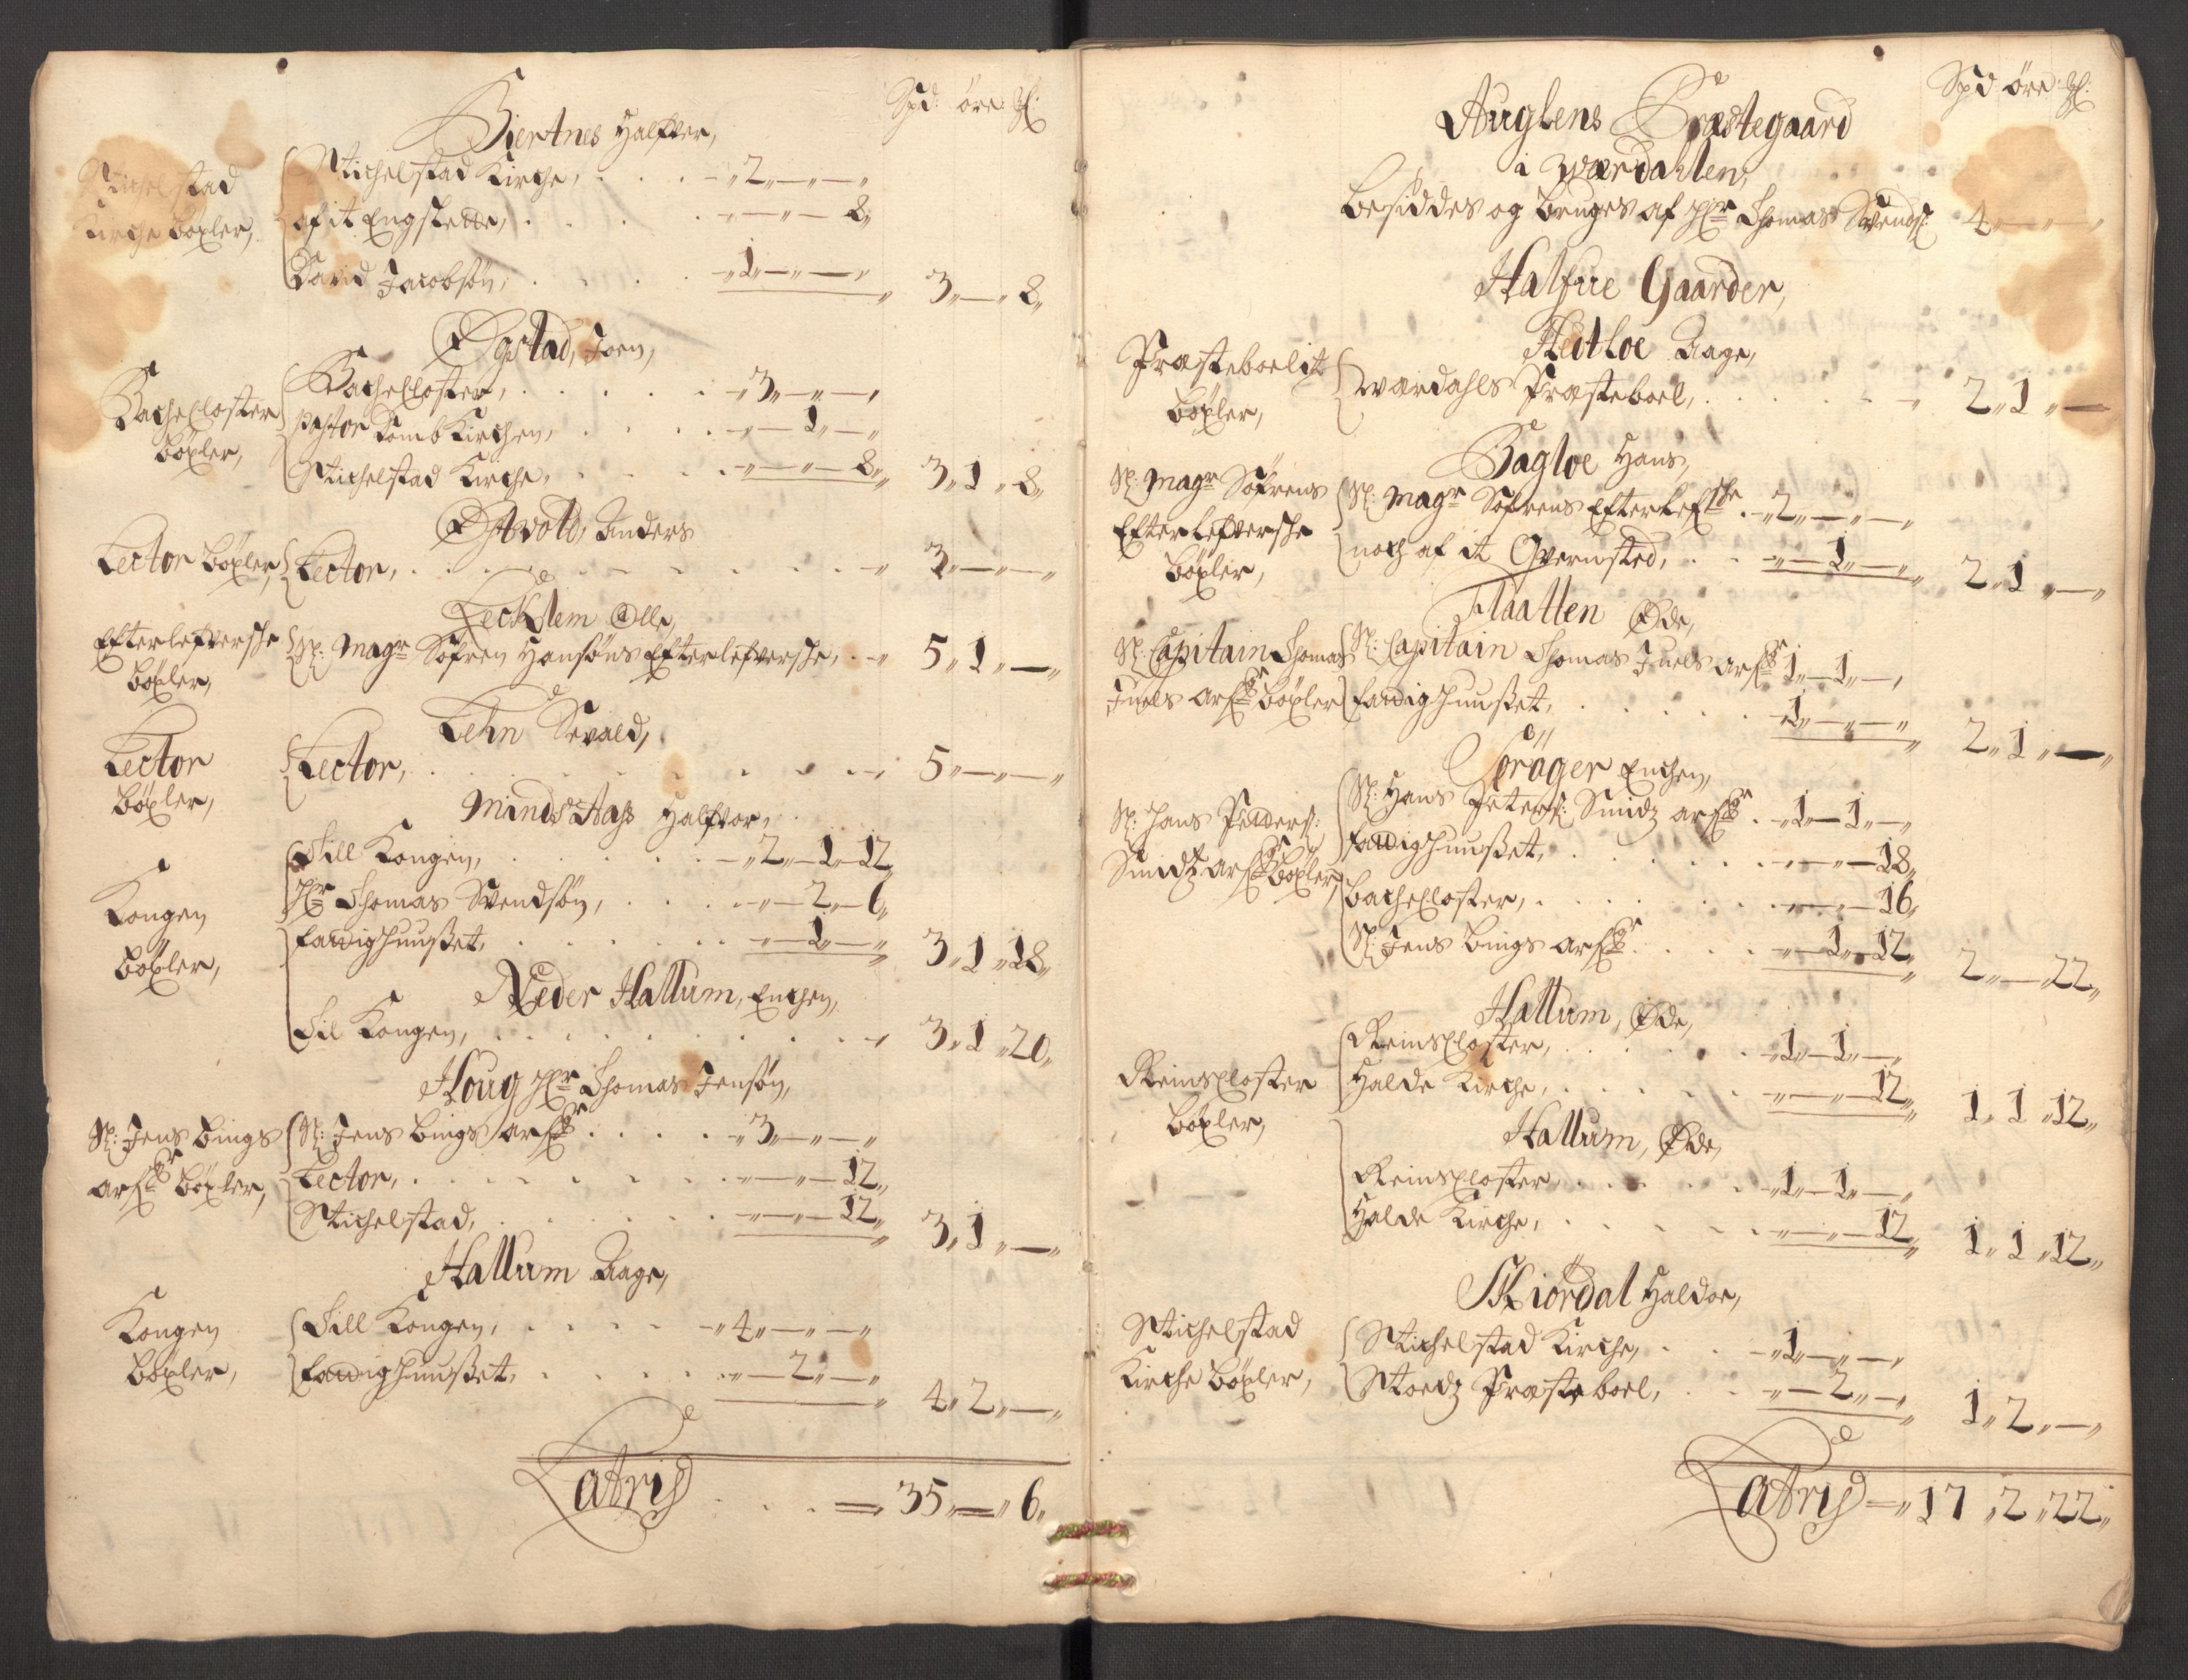 Spd: öre: ʒl:
Biertnes Halfver,
Stichelstad Kirche Böxler,
Stichelstad Kirche, 2 - -
af it Engslette, - - 8
David Jacobsøn, 1 - - 3 - 8
Øgstad, Joen,
Bachecloster Böxler,
Bachecloster, 3 - -
Pastor Domb Kirchen, - 1 -
Stichelstad Kirche, - - 8 3 1 8
Østvold, Anders
Lector Böxler, Lector, 3 - -
Lecklem Olle,
Efterlefversche Böxler,
Sl: Magr Søfren Hansøns Efterlefversche, 5 1 -
Lehn Sevald,
Lector Böxler,
Lector, 5 - -
Minds Aas Halfvor,
Kongen Böxler,
Till Kongen, 2 1 12
Hr Thomas Svendsøn, - 2 6
Fattighuusset, - 1 - 3 1 18
Neder Hallum, Enchen,
Til Kongen, 3 1 20
Houg Hr Thomas Jensøn,
Sl: Jens Bings arfr Böxler,
Sl: Jens Bings arfr 3 - -
Lector, - - 12
Stichelstad, - - 12 3 1 -
Hallum Aage,
Kongen Böxler,
Till Kongen, 4 - -
Fattighuusset, - 2 - 4 2 -
Latris 35 - 6

Spd öre ʒl:
Auglens Præstegaard
i Værdahlen,
Besiddes og bruges af Hr Thomas Svends: 4 - -
Halfue Gaarder,
Hedtloe Aage,
Præsteboelit Böxler,
Værdahls Præsteboel, 2 1 -
Bagloe Hans,
Sl: Magr Søfrens Efterlefversche Böxler,
Sl: Magr Søfrens Efterlefsche 2 - -
noch af it Qvernsted, - 1 - 2 1 -
Flaatten Øde,
Sl: Capitain Thomas Juels arfr Böxler
Sl: Capitain Thomas Juels arfr 1 1 -
Fattighuusset, 1 - - 2 1 -
Söräger Enchen,
Sl: Hans Peders: Smidz arfr Böxler,
Sl: Hans Peters: Smidz arfr 1 1 -
Fattighuusset, - - 18
Bachecloster, - - 16
Sl: Jens Bings arfr - 1 12 2 - 22
Hallum, Øde,
Reinscloster Böxler,
Reinscloster, 1 1 -
Halde Kirche, - - 12 1 1 12
Hallum, Øde,
Reinscloster, 1 1 -
Halde Kirche, - - 12 1 1 12
Skiördal Haldor,
Stichelstad Kirche Böxler,
Stichelstad Kirche, 1 - -
Stordz Præsteboel, - 2 - 1 2 -
Latris 17 2 22